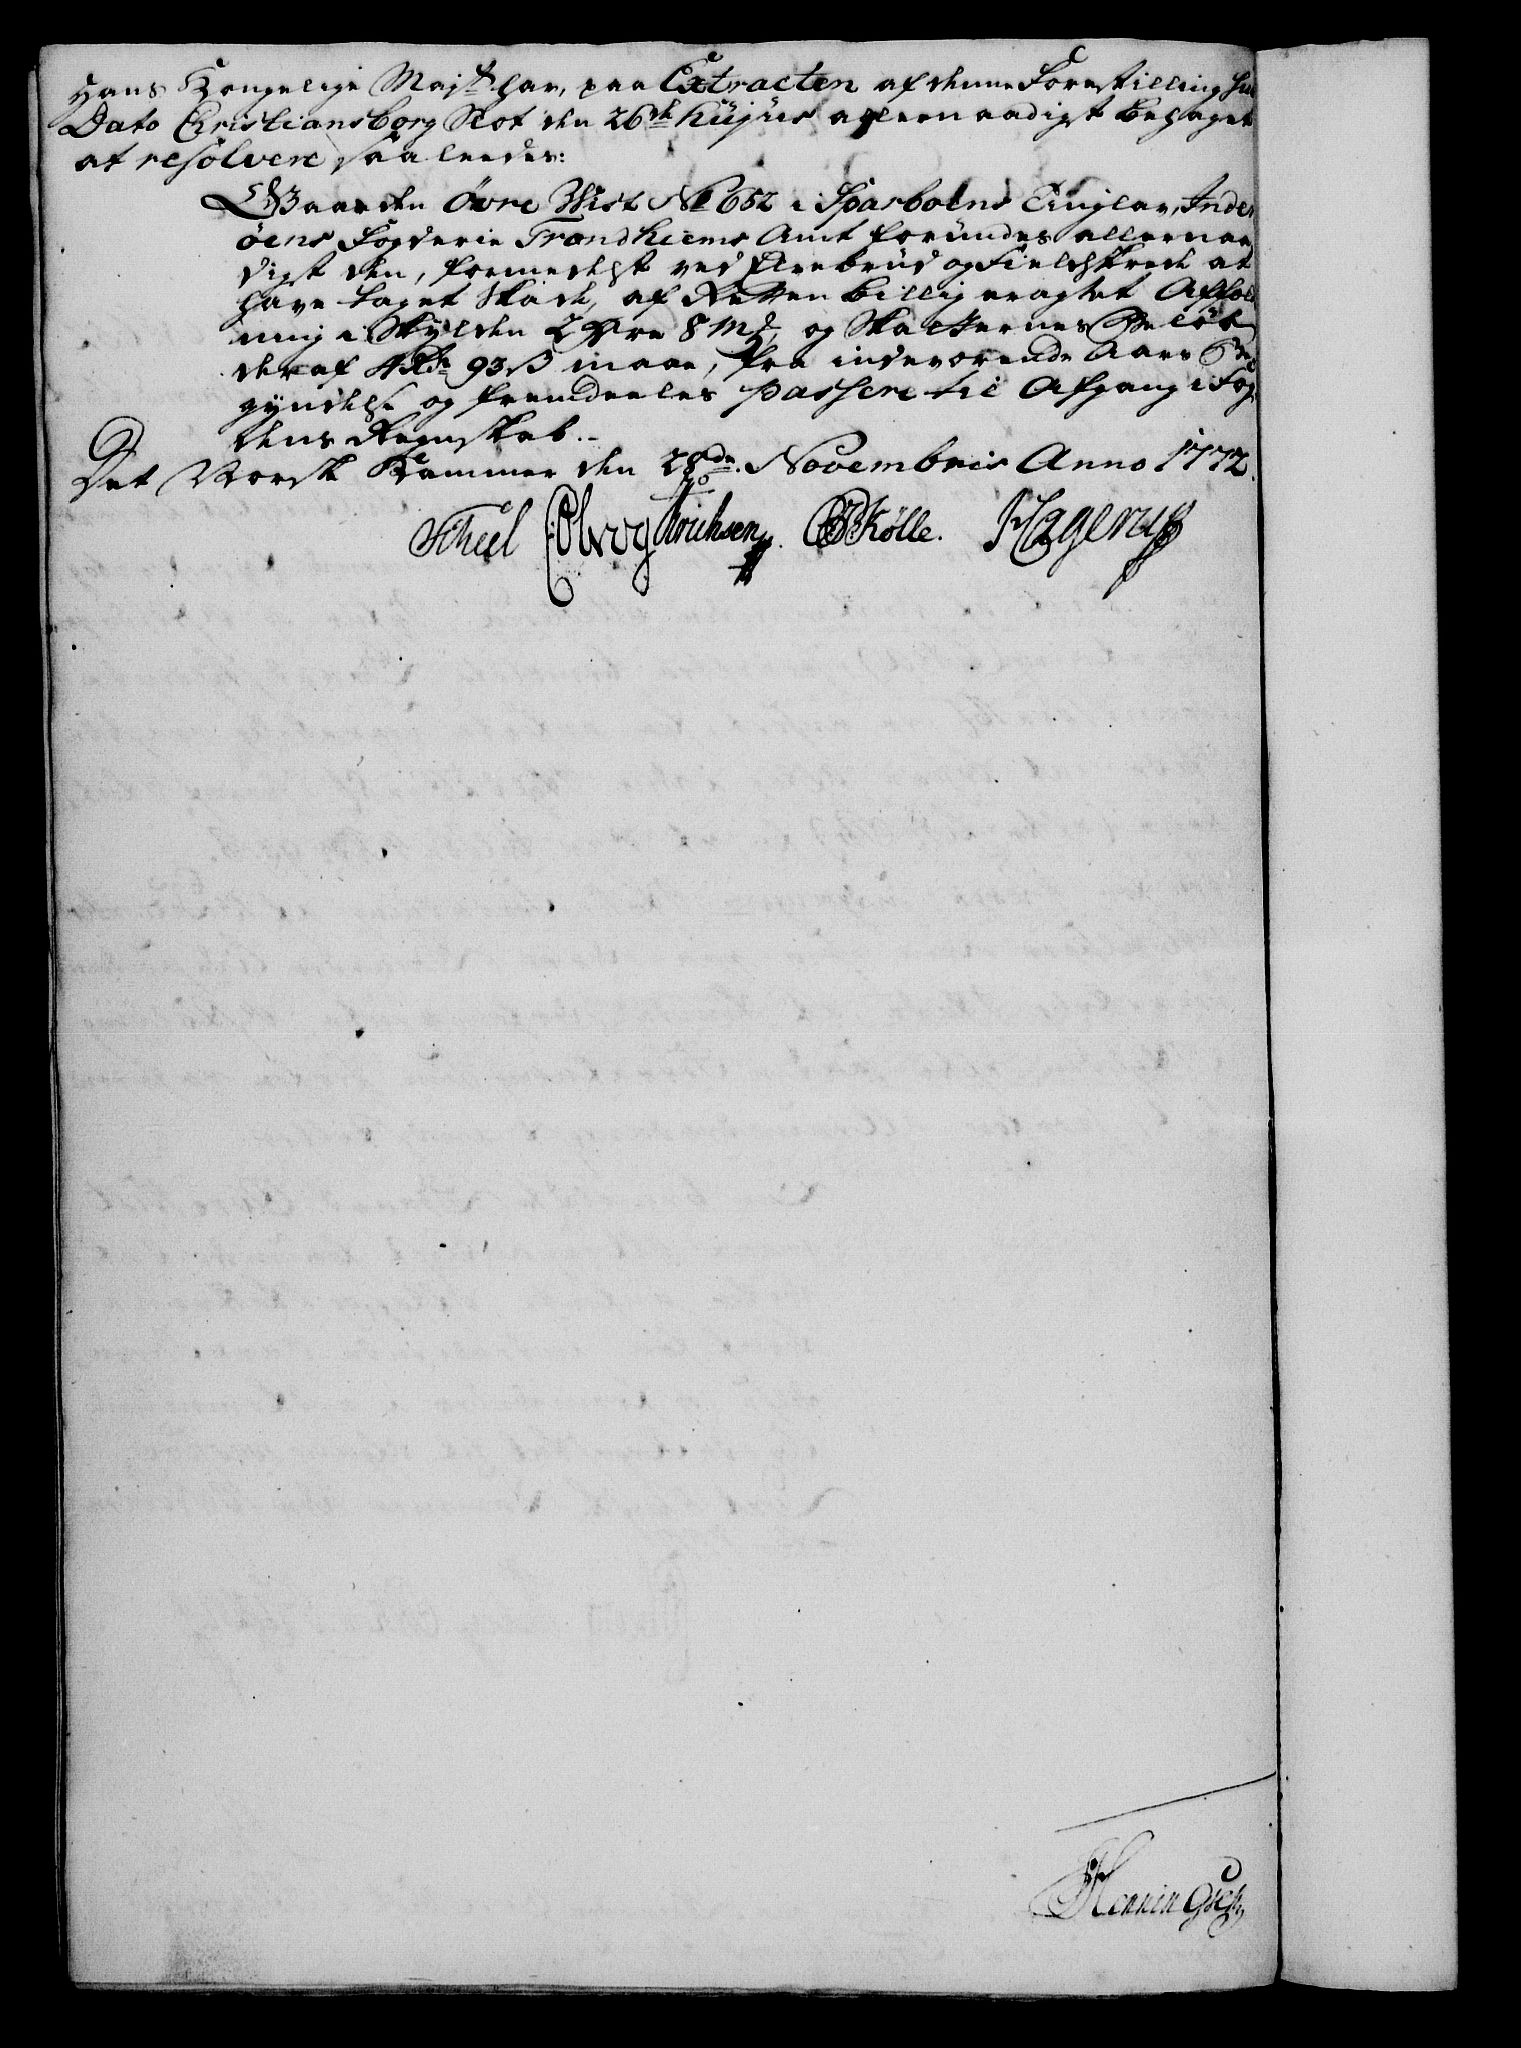 Hans Kongelige Majst: har, paa Extracten af denne Forestilling sub
Dato Christiansborg Slot den 26de hujus allernaadigst behaget
at resolvere saaledes:
Gaarden Övre Wist No 652 i Sparboens Tinglav, Inder
öens Fogderie Trondhiems Amt forundes allernaa
digst den, formedelst ved Elvebrud og Fieldskrede at
have taget Skade, af Retten billig eragtet Affæld
ning i Skylden 2 Øre 8 Mk, og Skatternes Belöb
deraf 4 Rdr 93 ß maae, fra indeværende Aars Be
gyndelse og fremdeeles passere til Afgang i Fog
dens Regnskab.-
Det Norske Kammer den 28de Novembris Anno 1772.
Scheel Erichsen Kölle. Hagerup
Henningsen